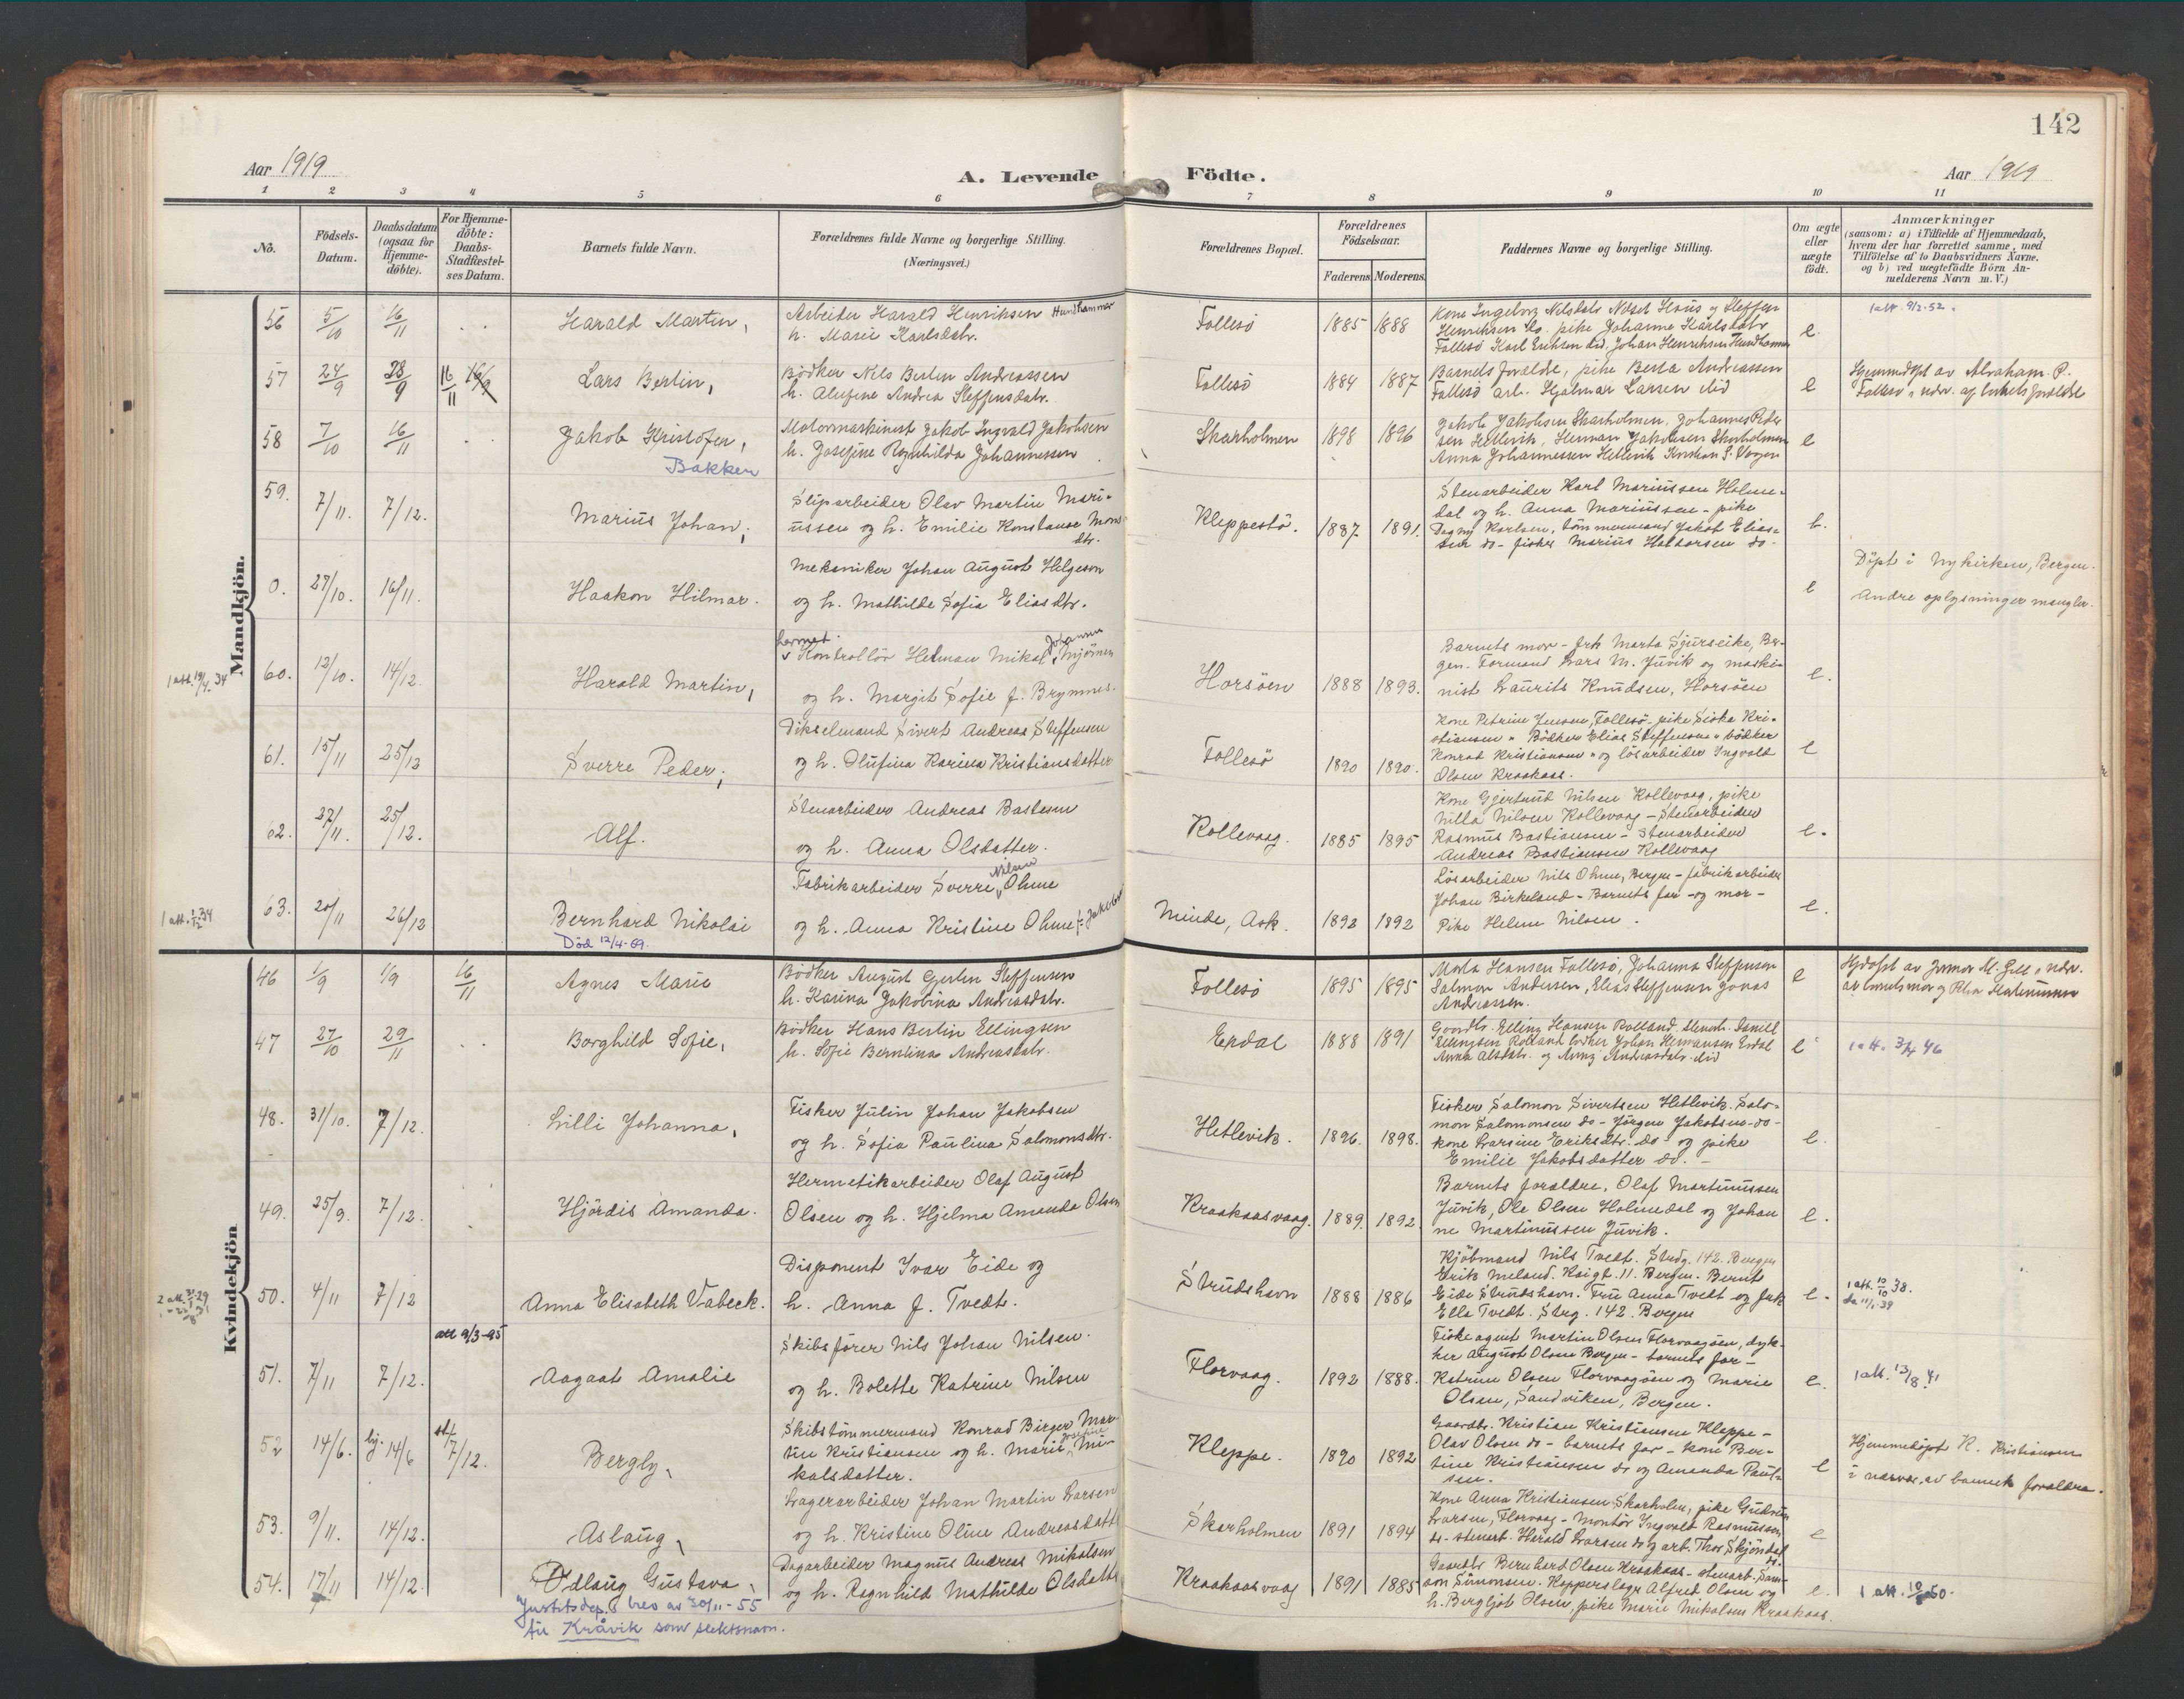 142
Aar 1919
A. Levende Födte.
Aar 1919
1 2 3 4 5 6 7 8 9 10 11
No.
Födsels-Datum.
Daabsdatum (ogsaa for Hjemme-döbte).
For Hjemme-döbte: Daabs-Stadfæstel-ses Datum.
Barnets fulde Navn.
Forældrenes fulde Navne og borgerlige Stilling.
(Næringsvei.)
Forældrenes Bopæl.
Forældrenes Födselsaar.
Faderens Moderens
Faddernes Navne og borgerlige Stilling.
Om ægte eller uægte födt.
Anmærkninger
(saasom: a) i Tilfælde af Hjemmedaab,
hvem der har forrettet samme, med
Tilföielse af to Daabsvidners Navne.
og b) ved uægtefödte Börn An-
melderens Navn m. V.)
Mandkjön.
56 5/10 16/11 Harald Martin,
Arbeider Harald Henriksen Hundhammer
h. Marie Karlsdatr.
Follesö 1885 1888
Kone Ingeborg Nilsdatr
Henriksen do. pike Johanne Karlsdatr
Follesö Karl Erichsen ibid. Johan Henriksen Hundhammer
e.
1 att. 9/2-52.
57 24/9 28/9 16/11 Lars Bertin,
Bödker Nils Bertin Andreassen
h. Alufine Andrea Steffensdatr.
Follesö 1884 1887
Barnets forældre, pike Berta Andreassen
Follesö arb. Hjalmar Larsen ibid
e
Hjemmedöpt av Abraham P.
Follesö i nærv. af barnets forældre
58 7/10 16/11 Jakob Kristofer,
Bakken
Motormaskinist Jakob Ingvald Jakobsen
h. Josefine Ragnhilda Johannessen
Skarholmen 1898 1896
Jakob Jakobsen Skarholmen, Johannes Peder
sen Hetlevik, Herman Jakobsen Skarholmen
Anna Johannessen Hetlevik
e
59. 7/11. 7/12. Marius Johan,
Sliparbeider Olav Martin Mari-
ussen og h. Emilie Konstanse Mons
dtr.
Kleppestö. 1887 1891.
Stenarbeider Karl Mariussen Holme-
dal og h. Anna Mariussen - pike
Dagny Karlsen, tömmermand Jakob Elias-
sen do - fisker Marius Halvorsen do.
e.
0. 27/10. 16/11. Haakon Hilmar.
Mekaniker Johan August Helgesen
og h. Mathilde Sofia Eliasdtr.
e
Döpt i Nykirken, Bergen.
Andre oplysninger mangler.
1 att. 19/4. 34
60. 12/10. 14/12. Harald Martin,
Kontrollör Helman Mikal Johansen Mjömen
og h. Margit Sofie f. Brymnes.
Horsöen 1888 1893.
Barnets mor - frk Marta Sjurseike, Ber-
gen. Formand Lars M. Juvik og maski-
nist Laurits Knudsen, Horsöen
e.
61. 15/11 25/12 Sverre Peder,
Dikselmand Sivert Andreas Steffensen
og h. Olufina Karina Kristiansdatter
Follesö 1890 1890.
Kone Petrine Jensen, Follesö - pike Siska Kri-
stiansen " Bödker Elias Steffensen " bödker
Konrad Kristiansen " og lösarbeider Ingvald
Olsen Kraakaas.
e
62. 27/11. 25/12. Alf.
Stenarbeider Andreas Bastesen
og h. Anna Olsdatter.
Rollevaag. 1885 1895
Kone Gjertrud Nilsen Rollevaag, pike
Nilla Nilsen Rollevaag - Stenarbeider
Rasmus Bastiansen - Stenarbeider
Andreas Bastiansen Rollevaag
e.
63. 20/11 26/12 Bernhard Nikolai
Död 12/4-69.
Fabrikarbeider Sverre Nilsen Ohme
og h. Anna Kristine Ohme f. Jakobs
Minde, Ask. 1892 1892
Lösarbeider Nils Ohme, Bergen - fabrikarbeider
Johan Birkeland - Barnets far - og mor -
Pike Helene Nilsen.
e.
Kvindekjön
46 1/9 1/9 16/11 Agnes Marie
Bödker August Gertin Steffensen
h. Karina Jakobina Andreasdatr.
Follesö 1895 1895
Marta Hansen Follesö, Johanna Steffensen
Salmon Andersen, Elias Steffensen Jonas
Andreassen.
e
47 27/10 29/11 Borghild Sofie,
Bödker Hans Bertin Ellingsen
h. Sofie Berntina Andreasdatr.
Erdal 1888 1891
Gaardbr. Elling Hansen Rolland. Stenarb. Daniel
Ellingsen Rolland bödker Johan Hermansen Erdal
Anna Olsdatr. og Anna Andreasdatr. ibid
e
1 att. 3/4 46
48. 31/10. 7/12. Lilli Johanna,
Fisker Julin Johan Jakobsen
og h. Sofia Paulina Salomonsdtr.
Hetlevik. 1896. 1898.
Fisker Salomon Sivertsen Hetlevik. Salo-
mon Salomonsen do - Jörgen Jakobsen - do -
kone Larsine Eriksdtr. do - og pike
Emilie Jakobsdatter do. -
e.
49. 25/9. 7/12. Hjördis Amanda.
Hermetikarbeider Olaf August
Olsen og h. Hjelma Amanda Olsen
Kraakaasvaag. 1889. 1892.
Barnets forældre, Olaf Martinussen
Juvik, Ole Olsen Holmedal og Johan
ne Martinussen Juvik.
e.
50. 4/11 7/12 Anna Elisabeth Vabeck.
Disponent Ivar Eide og
h. Anna f. Tvedt.
Strudshavn 1888 1886
Kjöbmand Nils Tvedt. Strdg. 142. Bergen
Erik Meland. Kaigt. 11. Bergen. Bernt
Eide Strudshavn. Fru Anna Tvedt og frk
Ella Tvedt. Strg. 142. Bergen
e.
1 att. 10/10 38.
att 9/3-95
51. 7/11 7/12. Aagaat Amalie
Skibsförer Nils Johan Nilsen.
og h. Bolette Katrine Nilsen
Florvaag. 1892 1888.
Fiskeagent Martin Olsen Florvaagöen, dyk-
ker August Olsen Bergen - barnets far -
Katrine Olsen Florvaagöen og Marie
Olsen, Sandviken, Bergen.
e.
1 att. 13/8. 41
52 14/6. hj. 14/6 st. 7/12. Bergly,
Skibstömmermand Konrad Birger Mar-
tin Kristiansen og h. Marie Josefine Mi-
kalsdatter.
Kleppe. 1890 1892
Gaardbr. Kristian Kristiansen Kleppe -
Olav Olsen do - barnets far - kone Ber-
tine Kristiansen do og Amanda Paul-
sen.
e
Hjemmedöpt K. Kristiansen
i nærvær. av barnets forældre.
53. 9/11. 14/12. Aslaug,
Lagerarbeider Johan Martin Larsen
og h. Kristine Oline Andreasdatt
Skarholmen 1891 1894
Kone Anna Kristiansen Skarholm, pike Gudrun
Larsen, Florvaag - Montör Ingvald Rasmussen
do - stenarb. Harald Larsen do og arb. Thor Skjöndal
do.
e
54. 17/11 14/12. Odlaug Gustava,
Dagarbeider Magnus Andreas Mikalsen
og h. Ragnhild Mathilde Olsdatt
Kraakaasvaag 1891 1885
Gaardbr Bernhard Olsen Kraakaas - stenarb. Sam-
son Simonsen. Kopperslager Alfred Olsen og
h. Bergljot Olsen, pike Marie Nikolsen Kraakaas.
e.
Justitsdep.s brev av 30/11-55
til Kråvik som slektsnavn.